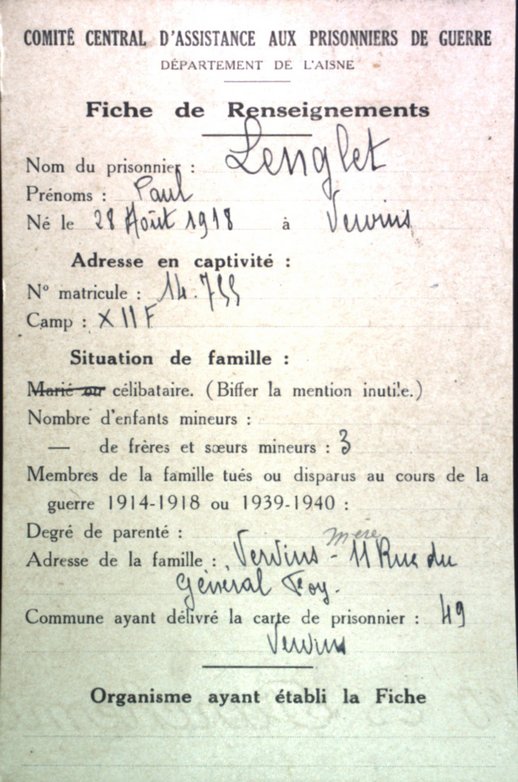 COMITÉ CENTRAL D'ASSISTANCE AUX PRISONNIERS DE GUERRE
DÉPARTEMENT DE L'AISNE
Fiche de Renseignements
Nom du prisonnier : Lenglet
Prénoms : Paul
Né le 28 Août 1918 à Vervins
Adresse en captivité :
N° matricule : 14.755
Camp : XIIF
Situation de famille :
Marié ou célibataire. (Biffer la mention inutile.)
Nombre d'enfants mineurs :
— de frères et sœurs mineurs : 3
Membres de la famille tués ou disparus au cours de la
guerre 1914-1918 ou 1939-1940 :
Degré de parenté : mère
Adresse de la famille : Vervins - 11 Rue du
Général Foy.
Commune ayant délivré la carte de prisonnier : 49
Vervins
Organisme ayant établi la Fiche